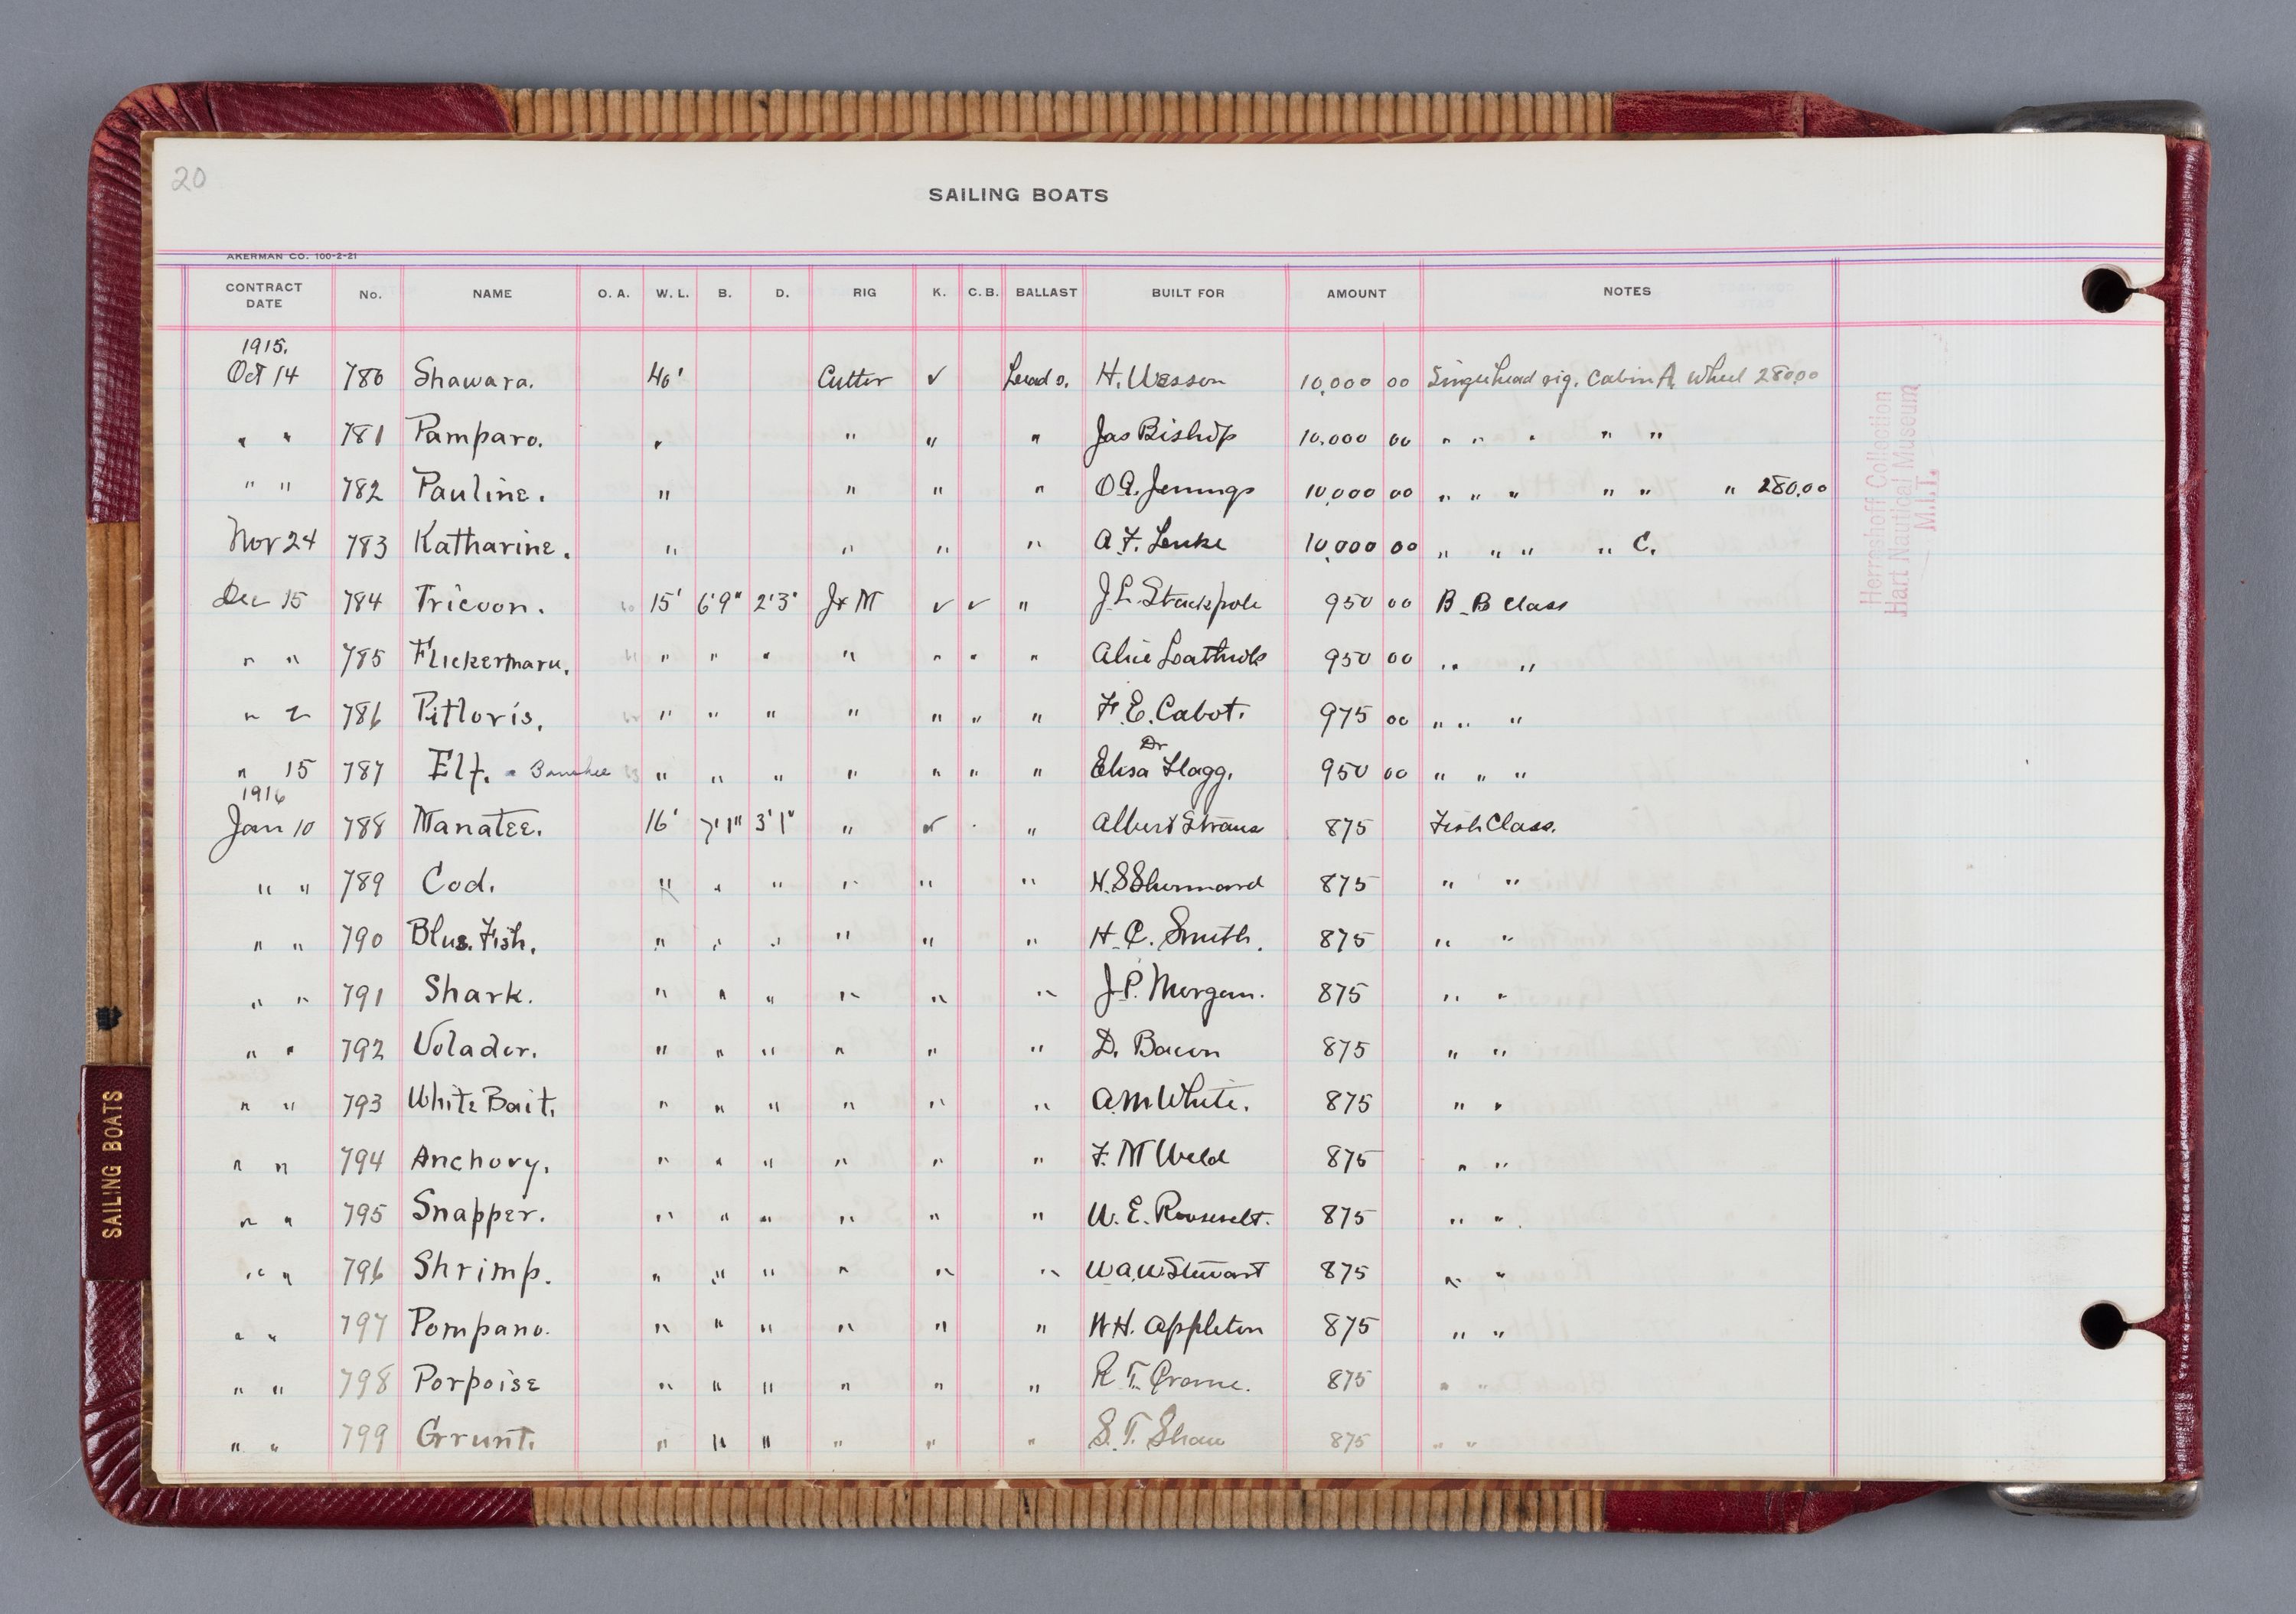 20
SAILING BOATS
AKERMAN CO. 100-2-21
CONTRACT DATE No. NAME O. A. W. L. B. D. RIG K. C. B. BALLAST BUILT FOR AMOUNT NOTES
1915.
Oct 14 780 Shawara. 40' Cutter ✓ Lead o. H. Wesson 10,000 00 Single head rig. Cabin A. Wheel 280.00
" " 781 Pamparo. " " " " Jas Bishop 10,000 00 " " " " "
" " 782 Pauline. " " " " O.G. Jennings 10,000 00 " " " " " " 280.00
Nov 24 783 Katharine. " " " " A. F. Luke 10,000 00 " " " " C.
Dec 15 784 15' 6'9" 2'3" J & M ✓ ✓ " J. L. Stackpole 950 00 B-B Class
" " 785 " " " " " " " Alice 950 00 " "
" 2 786 " " " " " " " F. E. Cabot. 975 00 " " "
" 15 787 Elf. Banshee " " " " " " " Elisa Dr Flagg. 950 00 " " "
1916
Jan 10 788 Manatee. 16' 7'1" 3'1" " ✓ " Albert Straus 875 Fish Class.
" " 789 Cod. " " " " " " 875 " "
" " 790 Blue. Fish. " " " " " " H. C. Smith. 875 " "
" " 791 Shark. " " " " " " J. P. Morgan. 875 " "
" " 792 Volador. " " " " " " D. Bacon 875 " "
" " 793 White Bait. " " " " " " A.M White. 875 " "
" " 794 Anchovy. " " " " " " F. M Weld 875 " "
" " 795 Snapper. " " " " " " W. E. Roosevelt. 875 " "
" " 796 Shrimp. " " " " " " W A. W Stewart 875 " "
" " 797 Pompano. " " " " " " W H. Appleton 875 " "
" " 798 Porpoise " " " " " " R. T. Crane. 875 " "
" " 799 Grunt. " " " " " " S. T. Shaw 875 " "
Herreshoff Collection
Hart Nautical Museum
M.I.T.
SAILING BOATS